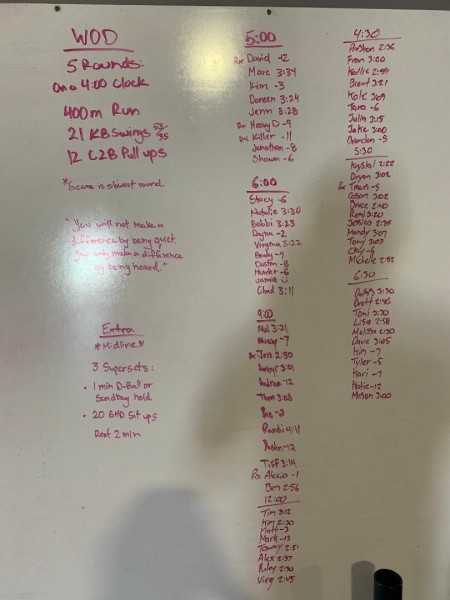 WOD
5 Rounds:
On a 4:00 Clock
400m Run
21 KB Swings 53/35
12 C2B Pull ups
*Score is slowest round
"You will not make a
difference by being quiet.
You only make a difference
by being heard."
Extra
*Midline*
3 Supersets:
• 1 min D-Ball or
Sandbag hold
• 20 GHD Sit ups
Rest 2 min
5:00
Rx David -12
Marc 3:34
Kim -3
Doreen 3:24
Jenn 3:28
Rx Heavy D -9
Rx Killer -11
Jonathan -8
Shawn -6
6:00
Stacy -6
Natalie 3:30
Bobbi 3:23
Dayna -2
Virginia 3:22
Brady -9
Dustin -8
Hunter -6
Jamie
Chad 3:11
9:00
Nal 3:21
-7
Rx Jess 2:50
3:01
Andrew -12
Thom 3:08
-2
Randi 4:11
-12
Tiff 3:14
Rx Alexis -1
Jen 2:56
12:00
Tim 3:12
Kim 2:30
Matt -3
Mark -13
Tammy 2:51
Alex 2:37
Riley 2:30
Virg 2:45
4:30
2:36
Fran 3:00
Kallie 2:57
Brent 3:21
Kole 3:09
Taro -6
Julie 3:15
Jake 3:00
Brandon -5
5:30
Krystal 2:22
Bryan 3:02
Rx Travis -5
Cason 3:02
Bruce 2:40
Remi 3:20
Jessica 2:35
Mandy 3:07
Tony 3:03
Clay -6
Michele 2:52
6:30
3:30
Brett 2:45
Toni 3:30
Lisa 2:58
Melissa 2:30
Dave 3:05
Kim -7
Tyler -5
Kari -7
Katie -12
Mason 3:00